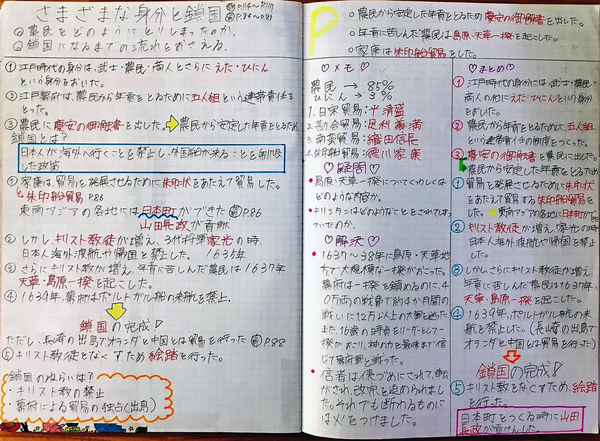 さまざまな身分と鎖国
◎農民をどのようにとりしまったのか。
◎鎖国になるまでの流れをおさえる。
①江戸時代の身分は、武士・農民・商人とさらにえた・ひにん
という身分をおいた。
②江戸幕府は、農民から年貢をとるために五人組という連帯責任を
とった。
③農民に慶安の御触書を出した。→農民から安定した年貢をとるため
鎖国とは?
日本人が海外へ行くことを禁止し、外国船が来ることを制限
した政策
①家康は貿易を発展させるために朱印状をあたえて貿易した。
↳朱印船貿易 P.86
東南アジアの各地には日本町ができた P.86
山田長政が貢献
②しかし、キリスト教徒が増え、3代将軍家光の時、
日本人海外渡航や帰国を禁した。 1635年
③さらにキリスト教が増え、年貢に苦しんだ農民は1637年
天草・島原一揆を起こした。
④1639年、幕府はポルトガル船の来航を禁止。
鎖国の完成!
ただし、長崎の出島でオランダと中国とは貿易を行った P.88
⑤キリスト教徒をなくすため絵踏を行った。
鎖国のねらいは?
・キリスト教の禁止
・幕府による貿易の独占(出島)
P
○農民から安定した年貢をとるため慶安の御触書を出した。
○年貢に苦しんだ農民は島原・天草一揆を起こした。
○家康は朱印船貿易をした。
♡メモ♡
農民 → 85%
ひにん → 3%
1.日宋貿易:平清盛
2.勘合貿易:足利義満
3.南蛮貿易:織田信長
4.朱印船貿易:徳川家康
♡疑問♡
・島原・天草一揆についてくわしくは
どのような内容か。
・キリシタンはどのようなことをされてしまっ
ていたのか。
♡解決♡
・1637〜38年に島原・天草地
方で大規模な一揆がおこった。
幕府は一揆を鎮めるのに、4
0万両の戦費で約4か月間の
戦いに12万以上の大軍を送った
また、16歳の時貞をリーダとして一
揆がおこり、神の力を最後まで信
じて幕府軍と戦った。
・信者は俵づめにされて、転
がされ、改宗を迫められまし
た。それでも断わるものに
は火をつけました。
♡まとめ♡
①江戸時代の身分には、武士・農民・
商人の他にえた・ひにんという身分を
おいた。
②農民から年貢をとるために、五人組
という連帯責任の制度をとった。
③慶安の御触書を農民に出した。
農民から安定した年貢をとるため
①貿易を発展させるために朱印状
をあたえて貿易する朱印船貿易をし
た。→東南アジアの各地に日本町が
②キリスト教徒が増え、家光の時
日本人海外渡航や帰国を禁止
した。
③しかし、さらにキリスト教徒が増え、
年貢に苦しんだ農民は1637年、
天草・島原一揆を起こした。
④1639年、ポルトガル船の来
航を禁止した。(長崎の出島で
オランダと中国とは貿易を行った)
鎖国の完成!
⑤キリスト教をなくすため、絵踏
を行った。
日本町をつくる時に山田
長政が貢けんした。